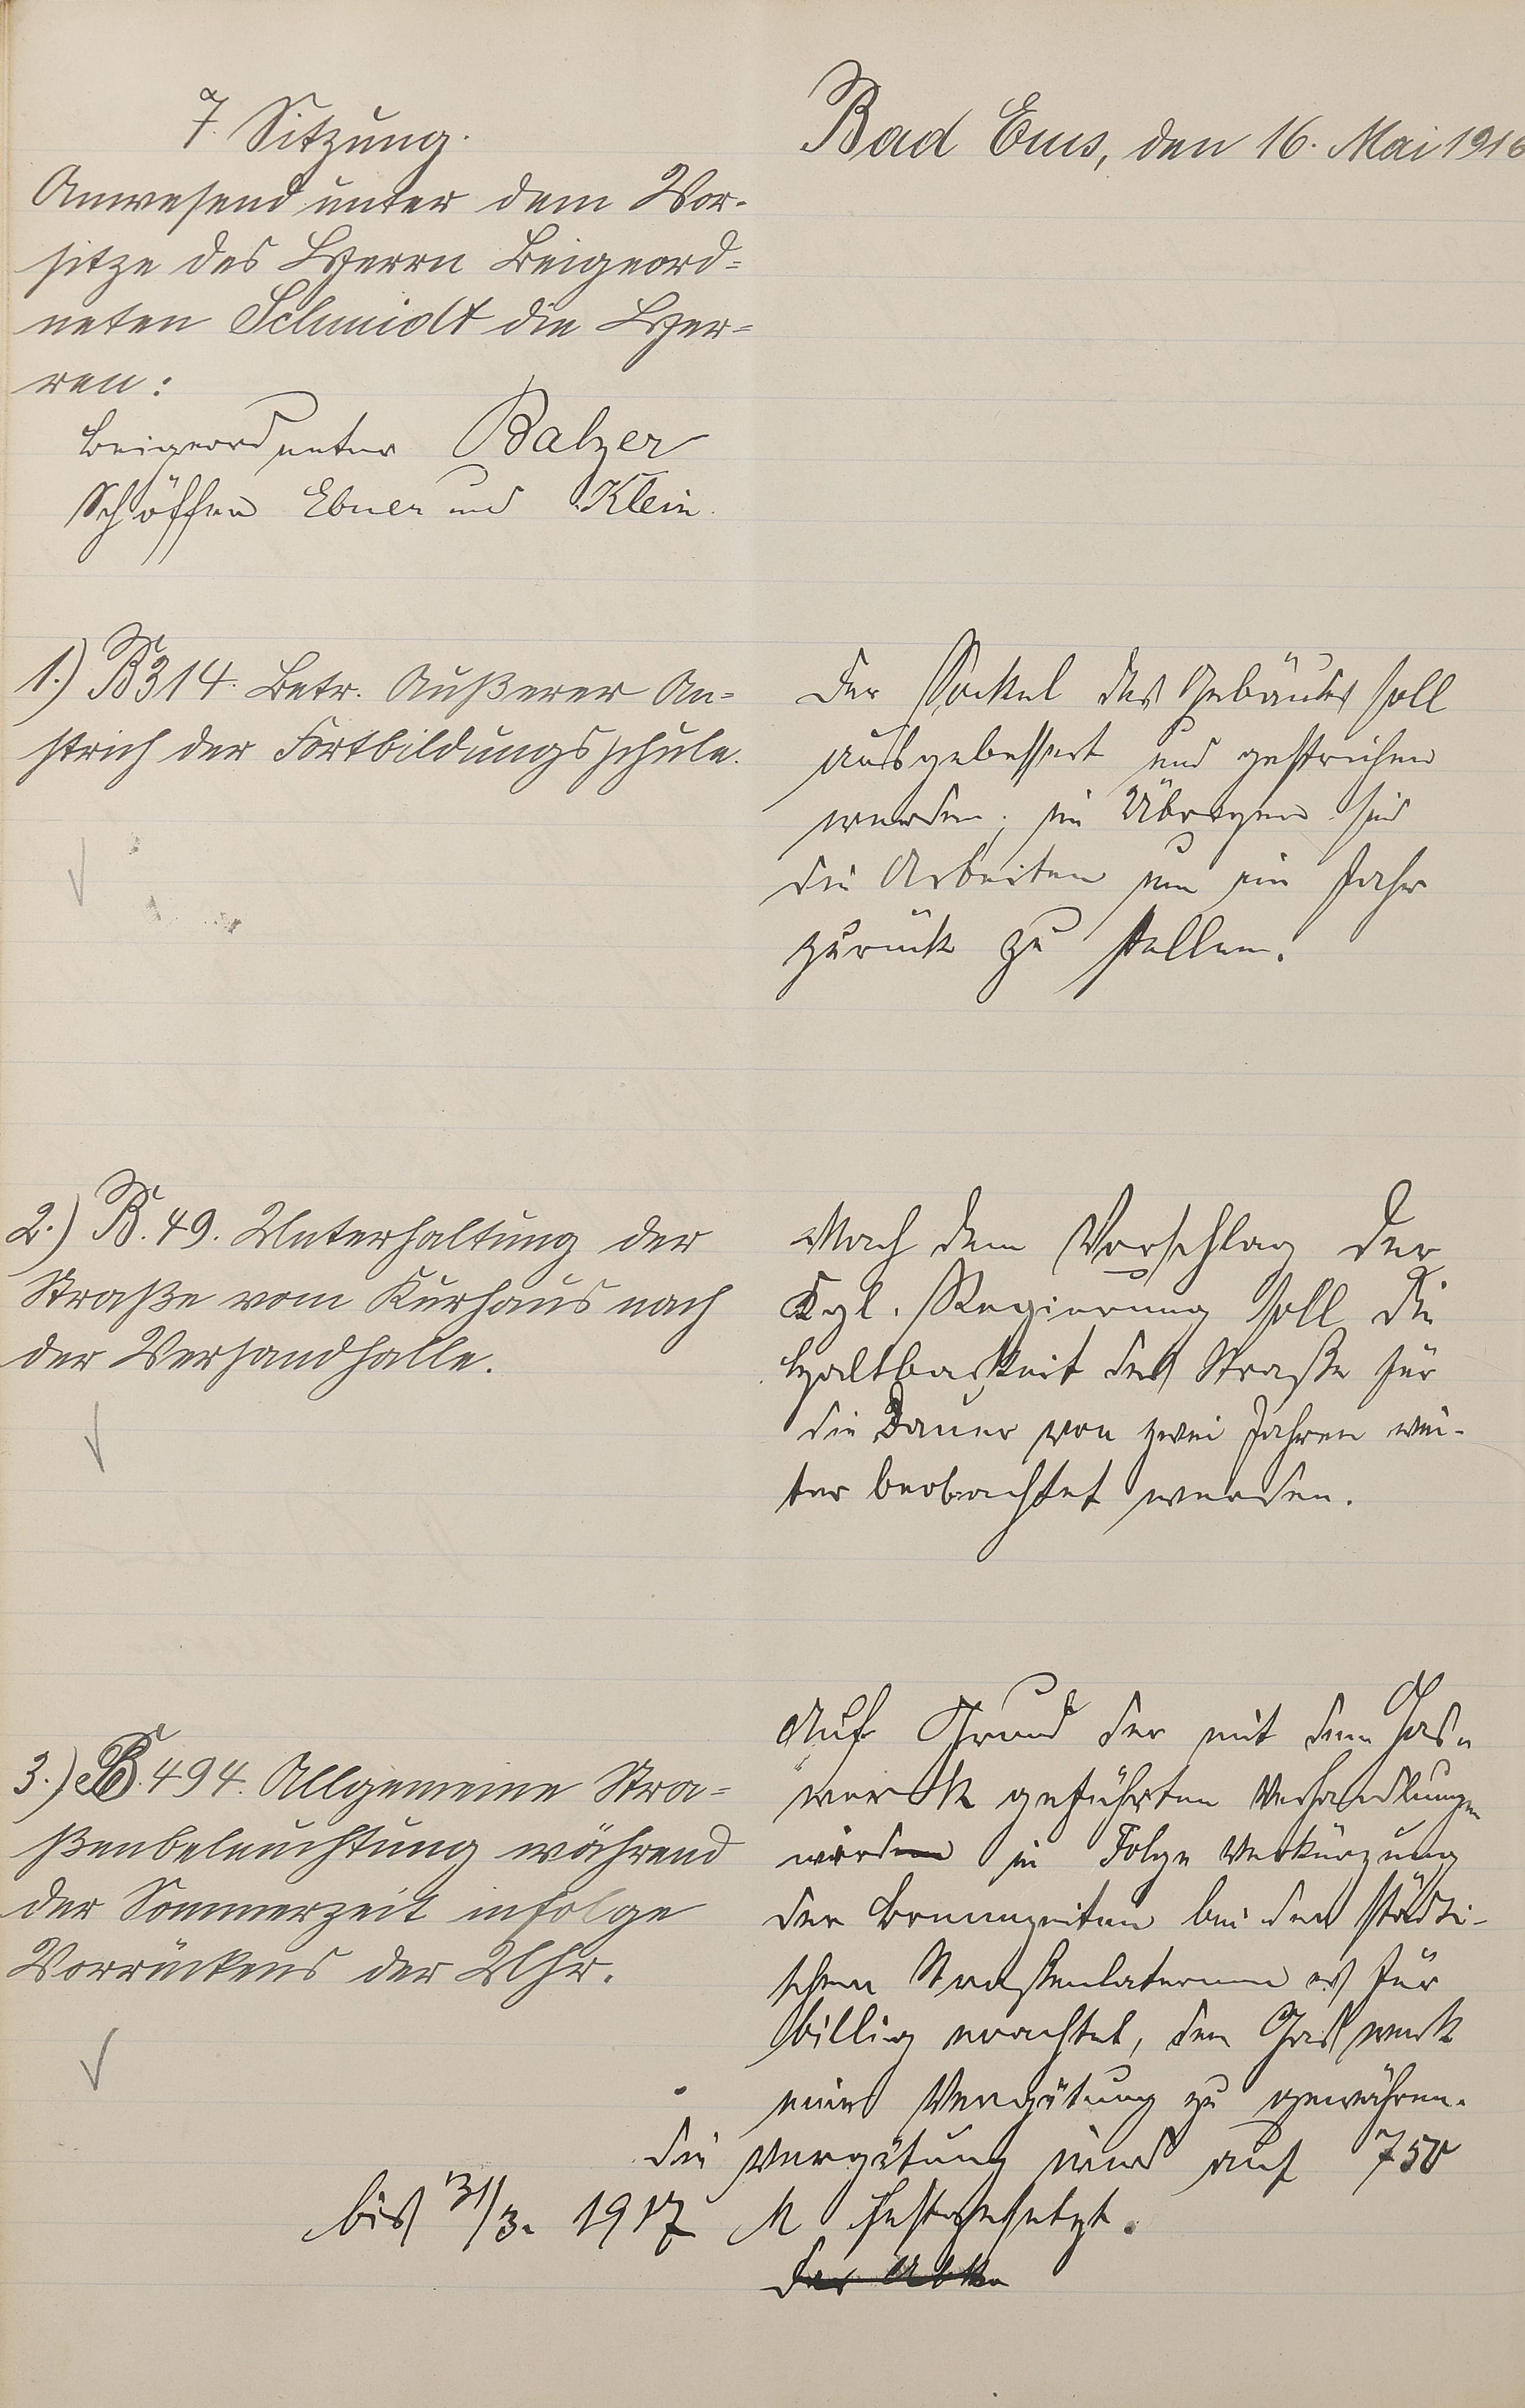 7. Sitzung.
Bad Ems, den 16. Mai 1916
Anwesend unter dem Vor-
sitze des Herrn Beigeord=
neten Schmidt die Her=
ren:
Beigeordneter Balzer
Schöffen Ebner und Klein.
1.) B 314. Betr. Äußerer An=
strich der Fortbildungsschule.
Der Sockel des Gebäudes soll
ausgebessert und gestrichen
werden; im Übrigen sind
die Arbeiten um ein Jahr
zurück zu stellen.
2.) B. 49. Unterhaltung der
Straße vom Kurhaus nach
der Versandhalle.
Nach dem Vorschlag der
Kgl. Regierung soll die
Haltbarkeit der Straße für
die Dauer von zwei Jahren wei-
ter beobachtet werden.
3.) B. 494. Allgemeine Stra=
ßenbeleuchtung während
der Sommerzeit infolge
Vorrückens der Uhr.
Auf Grund der mit dem Gas-
werk geführten Verhandlungen
wird in Folge Verkürzung
der Brennzeiten bei den städti-
schen Strassenlaternen es für
billig erachtet, dem Gaswerk
eine Vergütung zu gewähren.
Die Vergütung wird auf 750
bis 31/3. 1917 M festgesetzt.